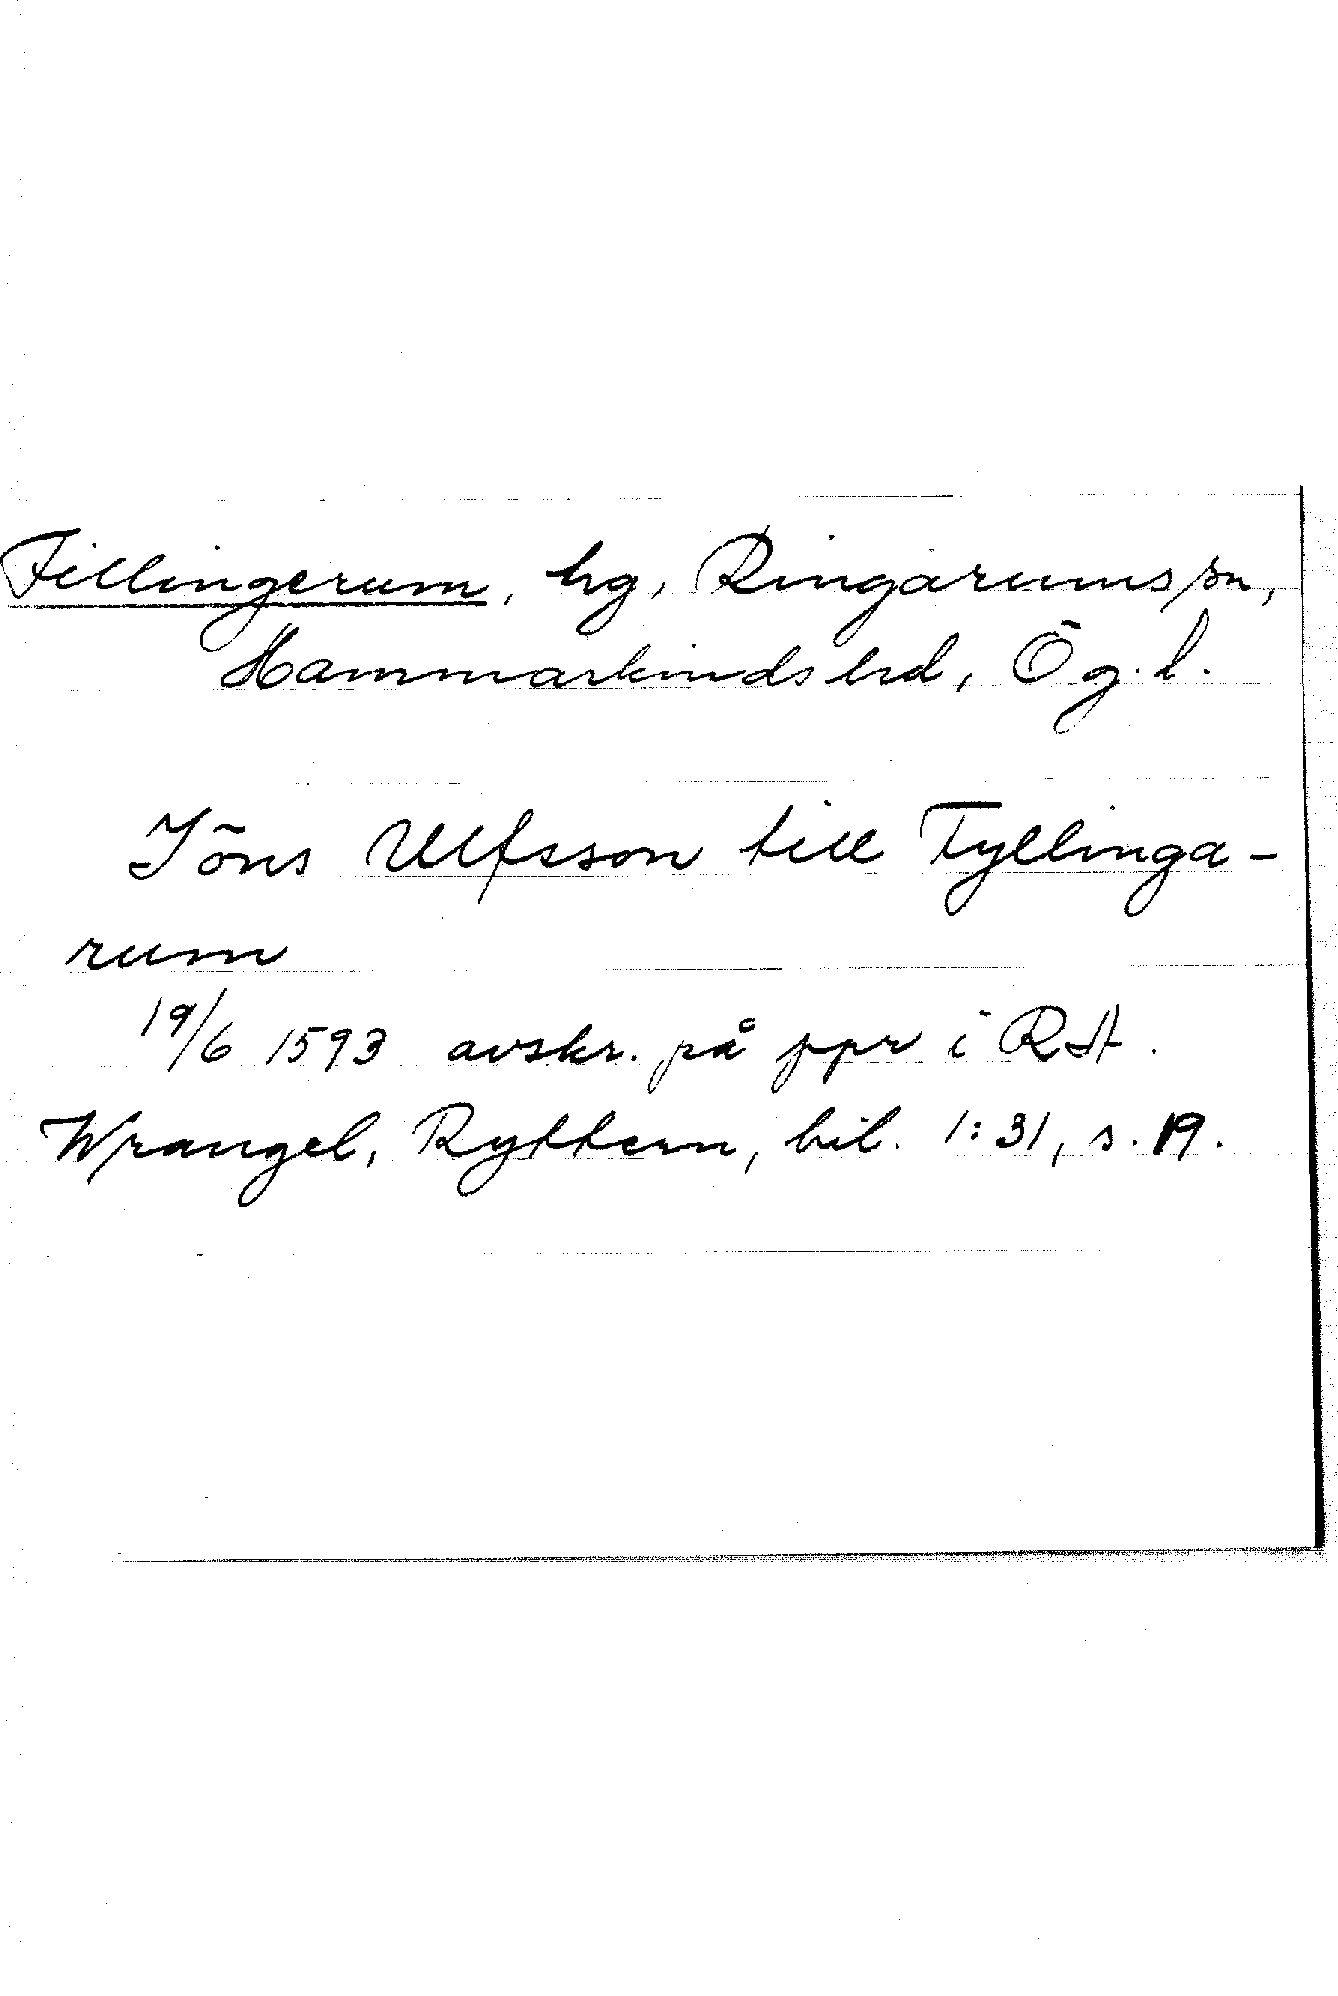 Fillingerum, hg, Ringarums sn,
Hammarkinds hd, Ög. l.
Jöns Ulfsson till Fyllinga-
rum
19/6 1593 avskr. på ppr i RA.
Wrangel, Ryttern, bil. 1:31, s. 19.